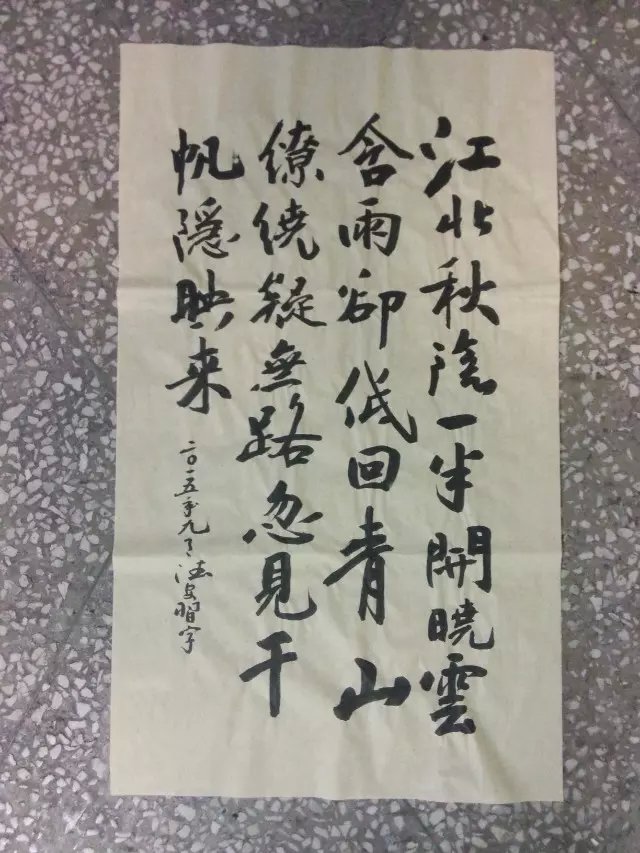 江北秋陰一半開曉雲
含雨卻低回青山
繚繞疑無路忽見千
帆隱映来
二〇一五年九月